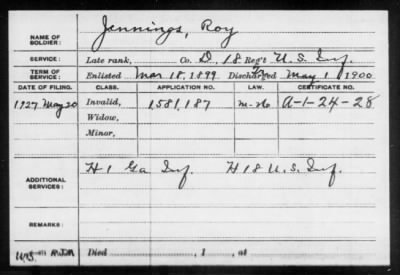 NAME OF SOLDIER: Jennings, Roy
SERVICE: Late rank, Co. D, 18 Reg't U.S. Inf.
TERM OF SERVICE: Enlisted Mar. 18, 1899 Discharged May 1, 1900
DATE OF FILING. CLASS. APPLICATION NO. LAW. CERTIFICATE NO.
1927 May 20 Invalid, 1581,187 A-1-24-28
Widow,
Minor,
ADDITIONAL SERVICES: H 1 Ga Inf. H 18 U.S. Inf.
REMARKS:
Died , 1 , at